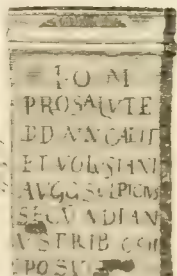 I O M
PRO SALVTE
DD NN GALLI
ET VOLVSIANI
AVGG SVLPICIVS
SECVNDIAN
VS TRIB COH
POSVIT